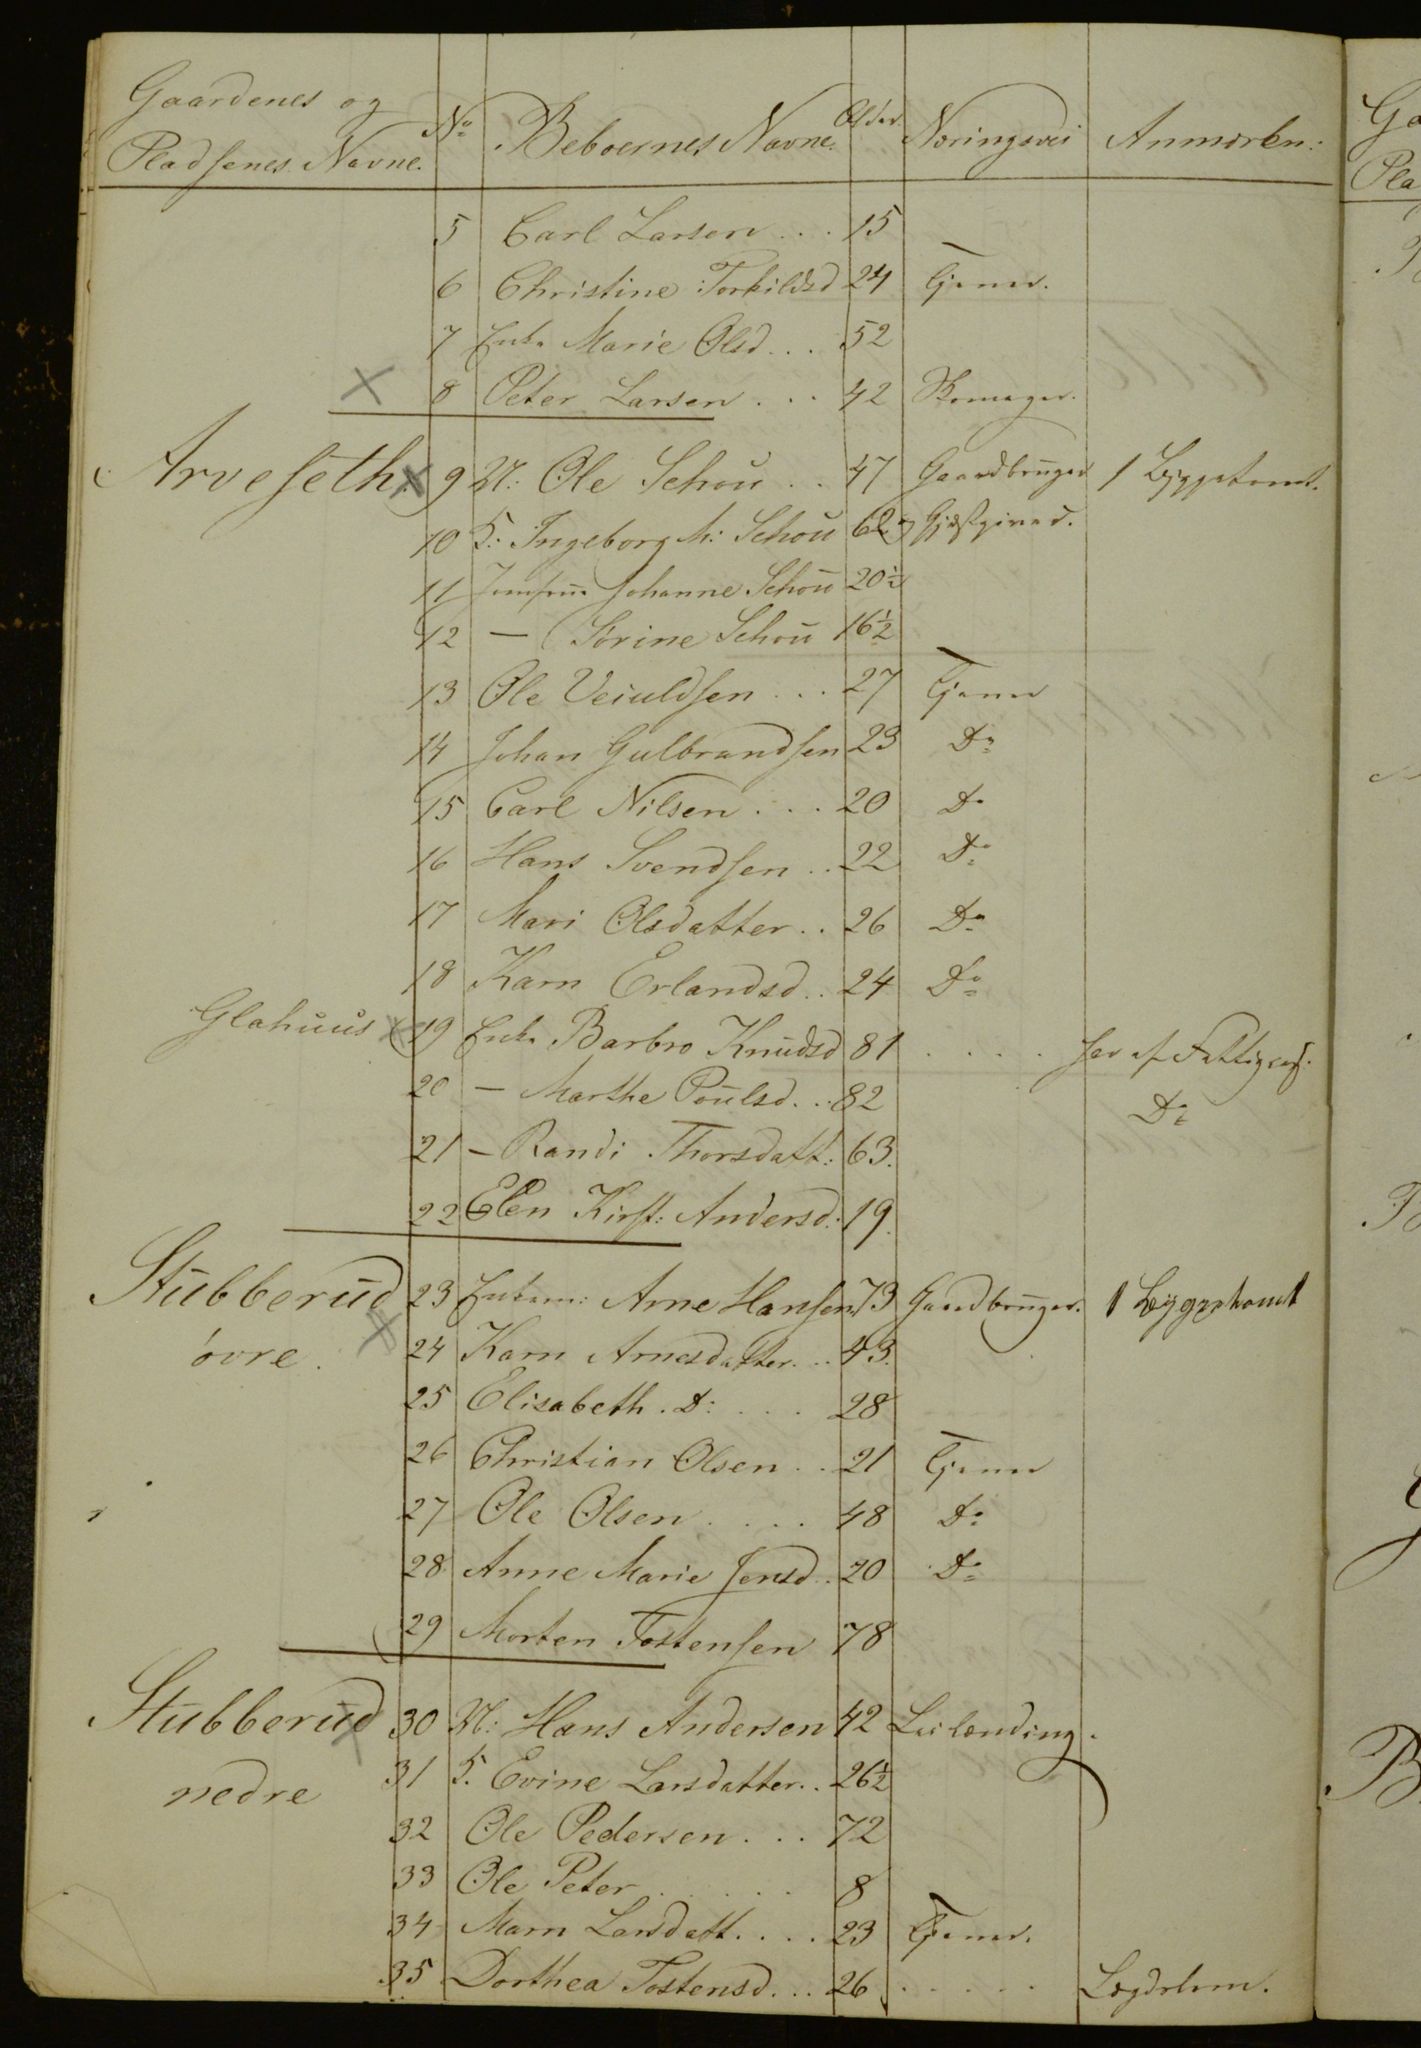 Gaardenes og Pladsenes Navne. No Beboernes Navne. Alder Næringsvei Anmærkn:
5 Carl Larsen . . . 15
6 Christine Torkildsd 24 Tjener.
7 Enke Marie Olsd . . . 52
8 Peter Larsen . . . 42 Skomager.
Arveseth. 9 M: Ole Schou . . 47 Gaardbruger 1 Byggetomt.
10 K: Ingeborg M: Schou 62 og Gjæstgiver.
11 Jomfrue Johanne Schou 20½
12 — Sørine Schou 16½
13 Ole Veiuldsen . . . 27 Tjener
14 Johan Gulbrandsen 23 Do
15 Carl Nilsen . . . 20 Do
16 Hans Svendsen . . 22 Do
17 Mari Olsdatter . . 26 Do
18 Karn Erlandsd . . 24 Do
Glahuus 19 Enke Barbro Knudsd 81 . . . . Lev af Fattigcas.
20 — Marthe Poulsd. . . 82 Do
21 — Randi Thorsdatt: 63.
22 Elen Kirst: Andersd: 19.
Stubberud 23 Enkem: Arne Hansen 73 Gaardbruger. 1 Byggetomt
øvre. 24 Karn Arnesdatter. . . 43.
25 Elisabeth. D: . . . 28
26 Christian Olsen . . 21 Tjener
27 Ole Olsen . . . . 48 Do
28 Anne Marie Jensd . . 20 Do
29 Morten Tostensen 78
Stubberud 30 M: Hans Andersen 42 Leilænding.
nedre 31 K. Evine Larsdatter. . 26½
32 Ole Pedersen . . . 72
33 Ole Peter . . . . . 8
34 Marn Larsdatt. . . . 23 Tjener.
35 Dorthea Tostensd. . . 26 . . . . . Lægdslem.
Ga
Pla